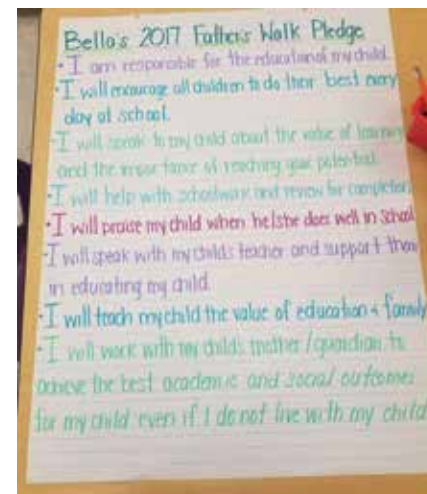 Bello's 2017 Father's Walk Pledge
• I am responsible for the education of my child.
• I will encourage all children to do their best every
day at school.
• I will speak to my child about the value of learning
and the importance of reaching your potential.
• I will help with schoolwork and review for completion
• I will praise my child when he/she does well in school
• I will speak with my child's teacher and support them
in educating my child.
• I will teach my child the value of education & family
• I will work with my child's mother/guardian to
achieve the best academic and social outcomes
for my child even if I do not live with my child